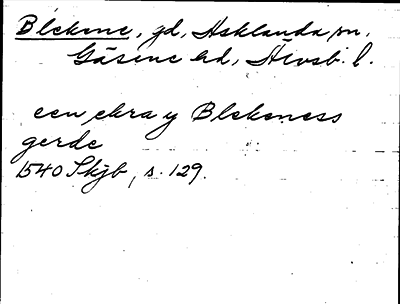 Blekene, gd, Asklanda sn,
Gäsene hd, Älvsb. l.
een ekra y Blekeness
gerde
1540 Skjb, s. 129.